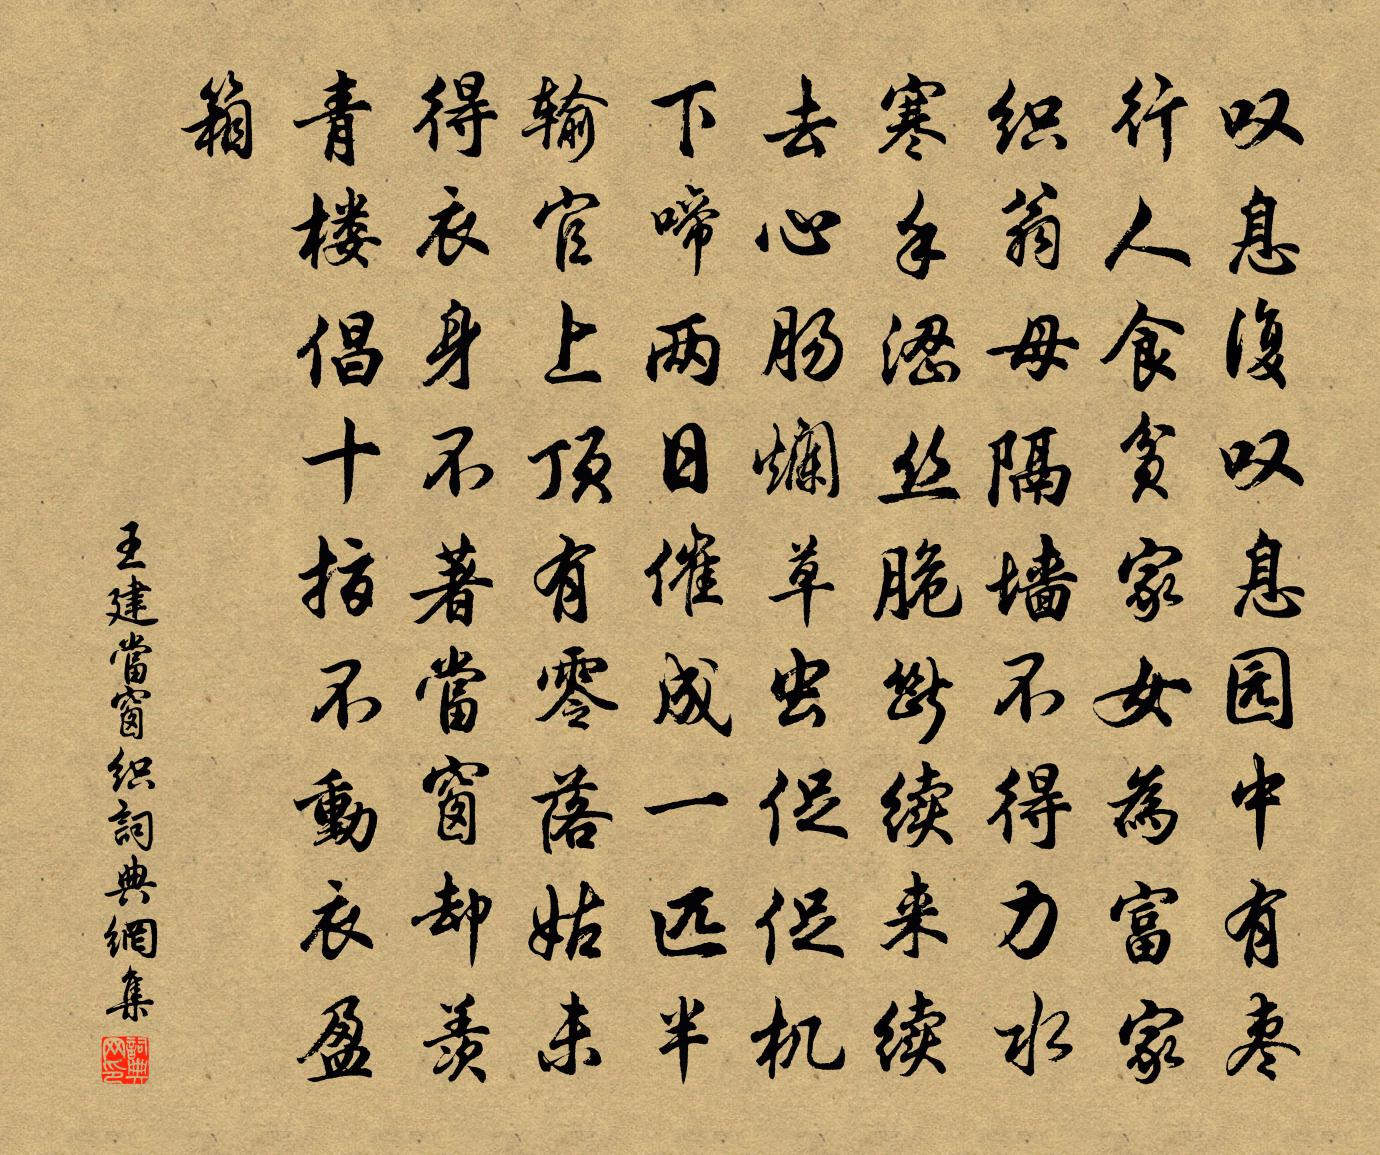 叹息復叹息园中有枣
行人食贫家女為富家
织翁母隔墙不得力水
寒手涩丝脆断续来续
去心肠烂草虫促促机
下啼两日催成一匹半
输官上顶有零落姑未
得衣身不著當窗却羡
青楼倡十指不動衣盈
箱
王建當窗织詞典網集
詞典网印